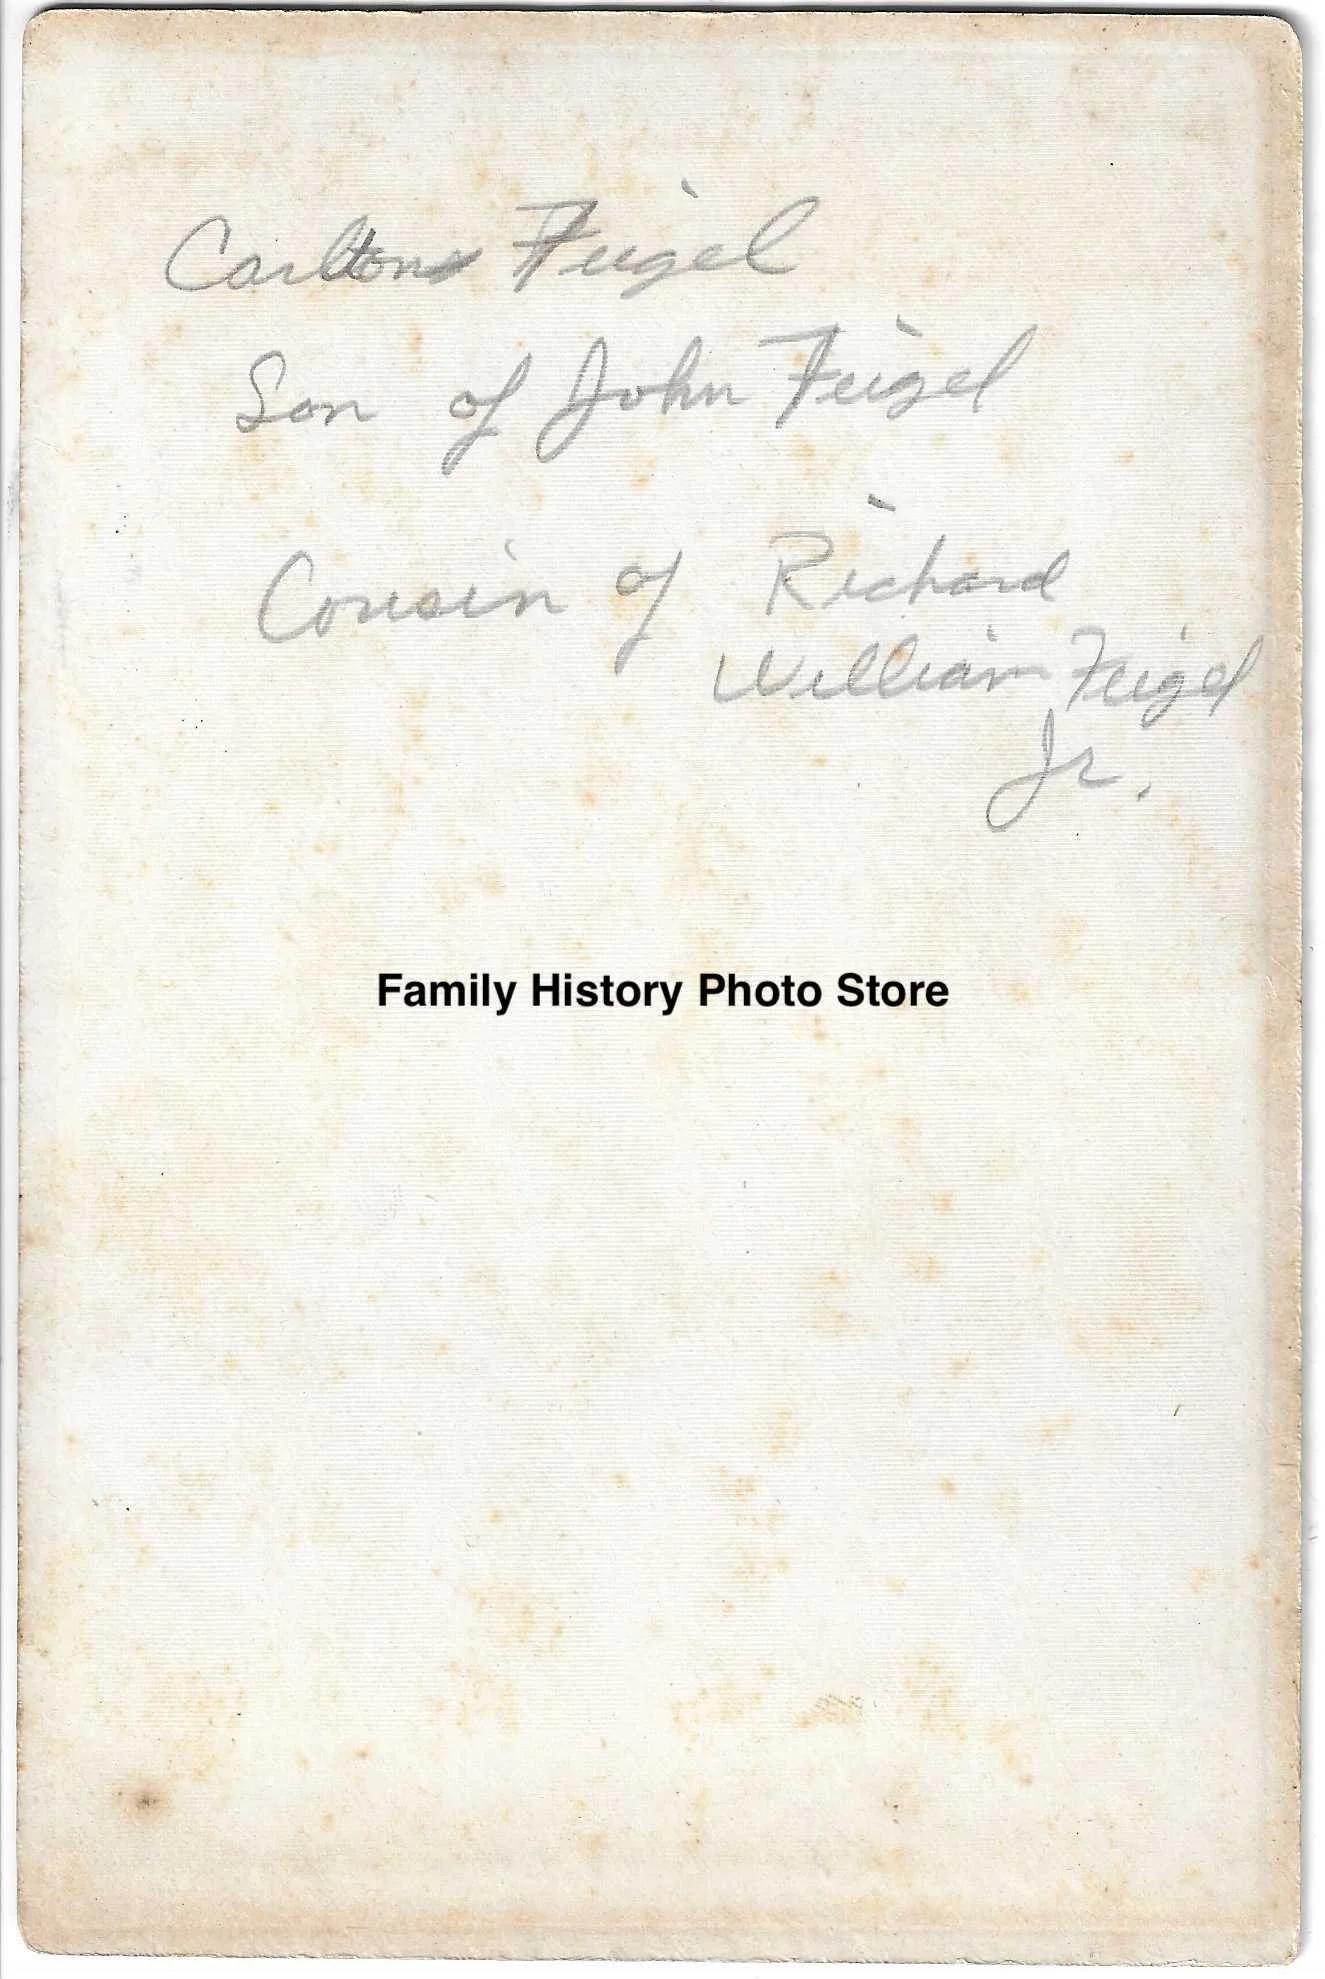 Carlton Feigel
Son of John Feigel
Cousin of Richard
William Feigel
Jr.
Family History Photo Store